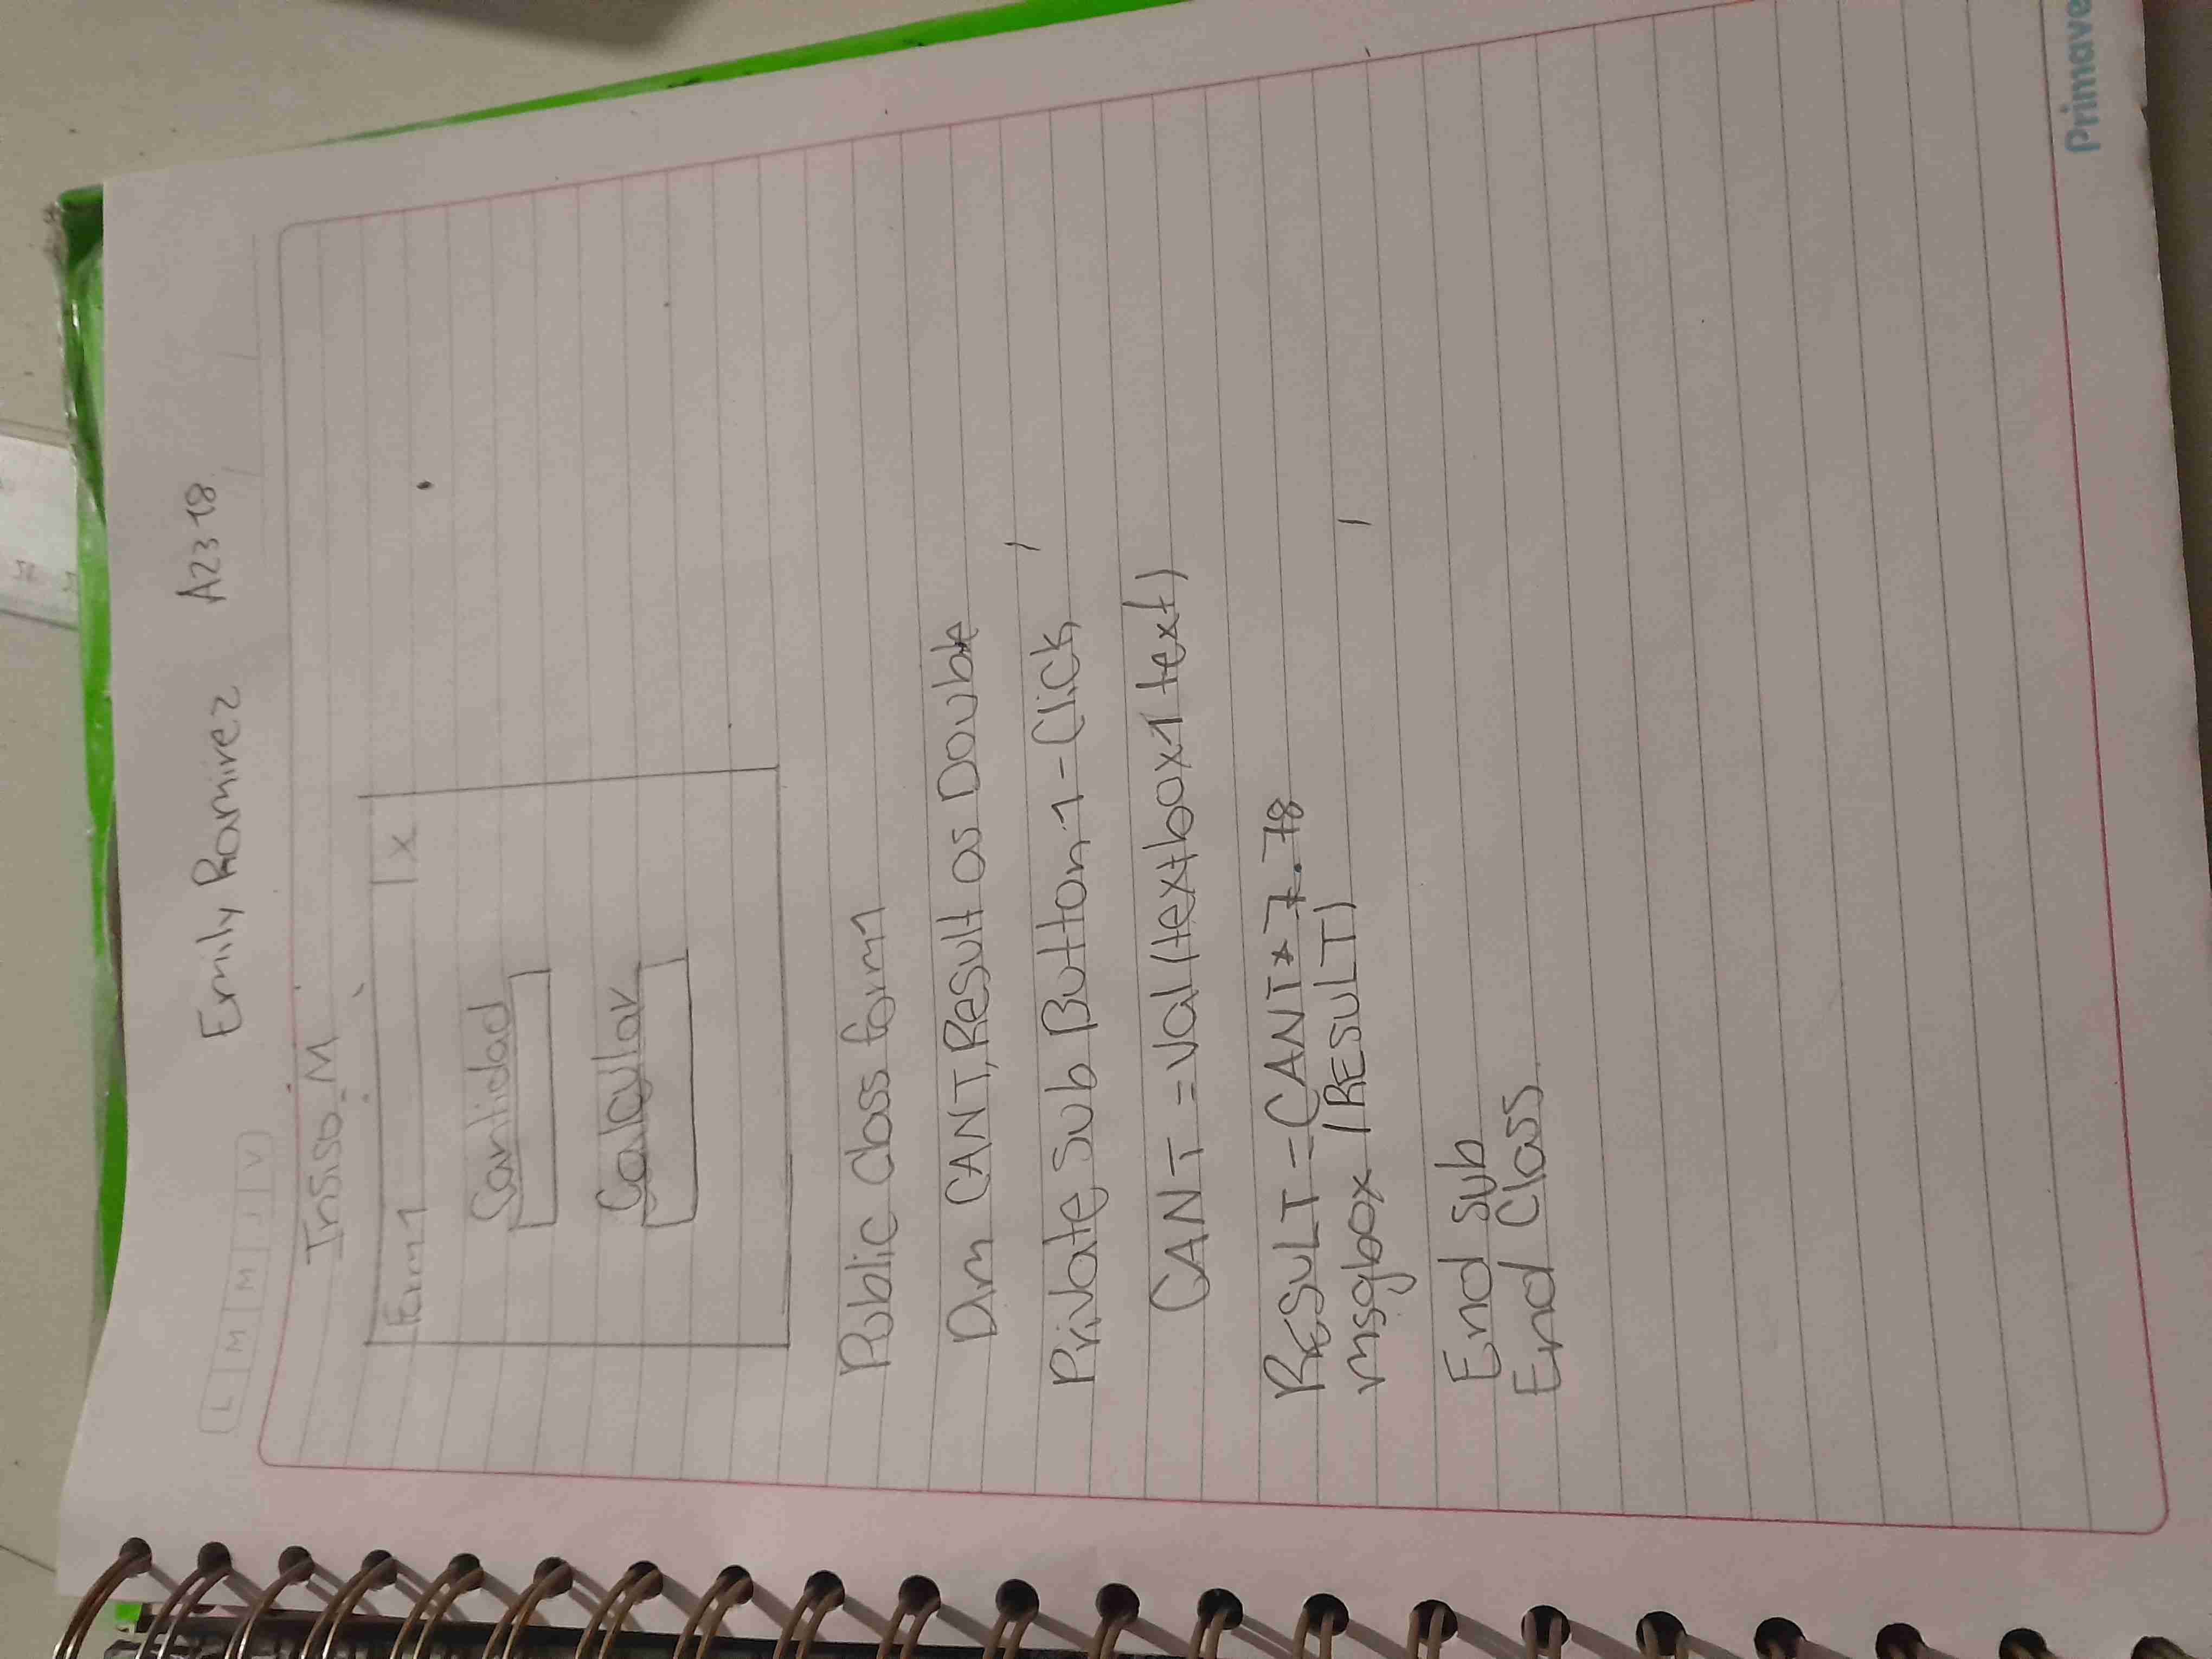 Emily Ramirez A2318
L M M J V
Insiso M
Form1 X
Cantidad
Calcular
Public Class form1
Dim CANT, Result as Double
Private Sub Button1-Click
CANT = val(textbox1 text)
RESULT = CANT * 7.78
msgbox (RESULT)
End Sub
End Class
Primave